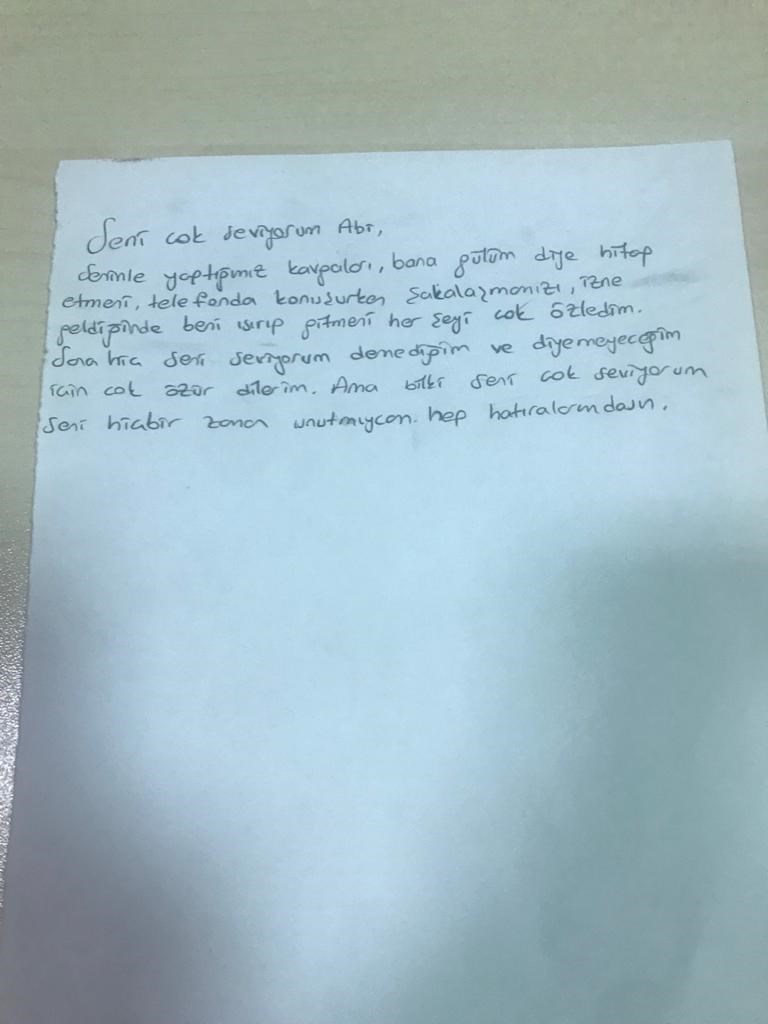 Seni cok seviyorum Abi,
Seninle yaptığımız kavgaları, bana gülüm diye hitap
etmeni, telefonda konuşurken şakalaşmanızı, izne
geldiğinde beni ısırıp gitmeni her şeyi cok özledim.
Sana hic seni seviyorum demediğim ve diyemeyeceğim
icin cok özür dilerim. Ama bilki seni cok seviyorum
seni hicbir zaman unutmıycam. hep hatıralarımdasın.